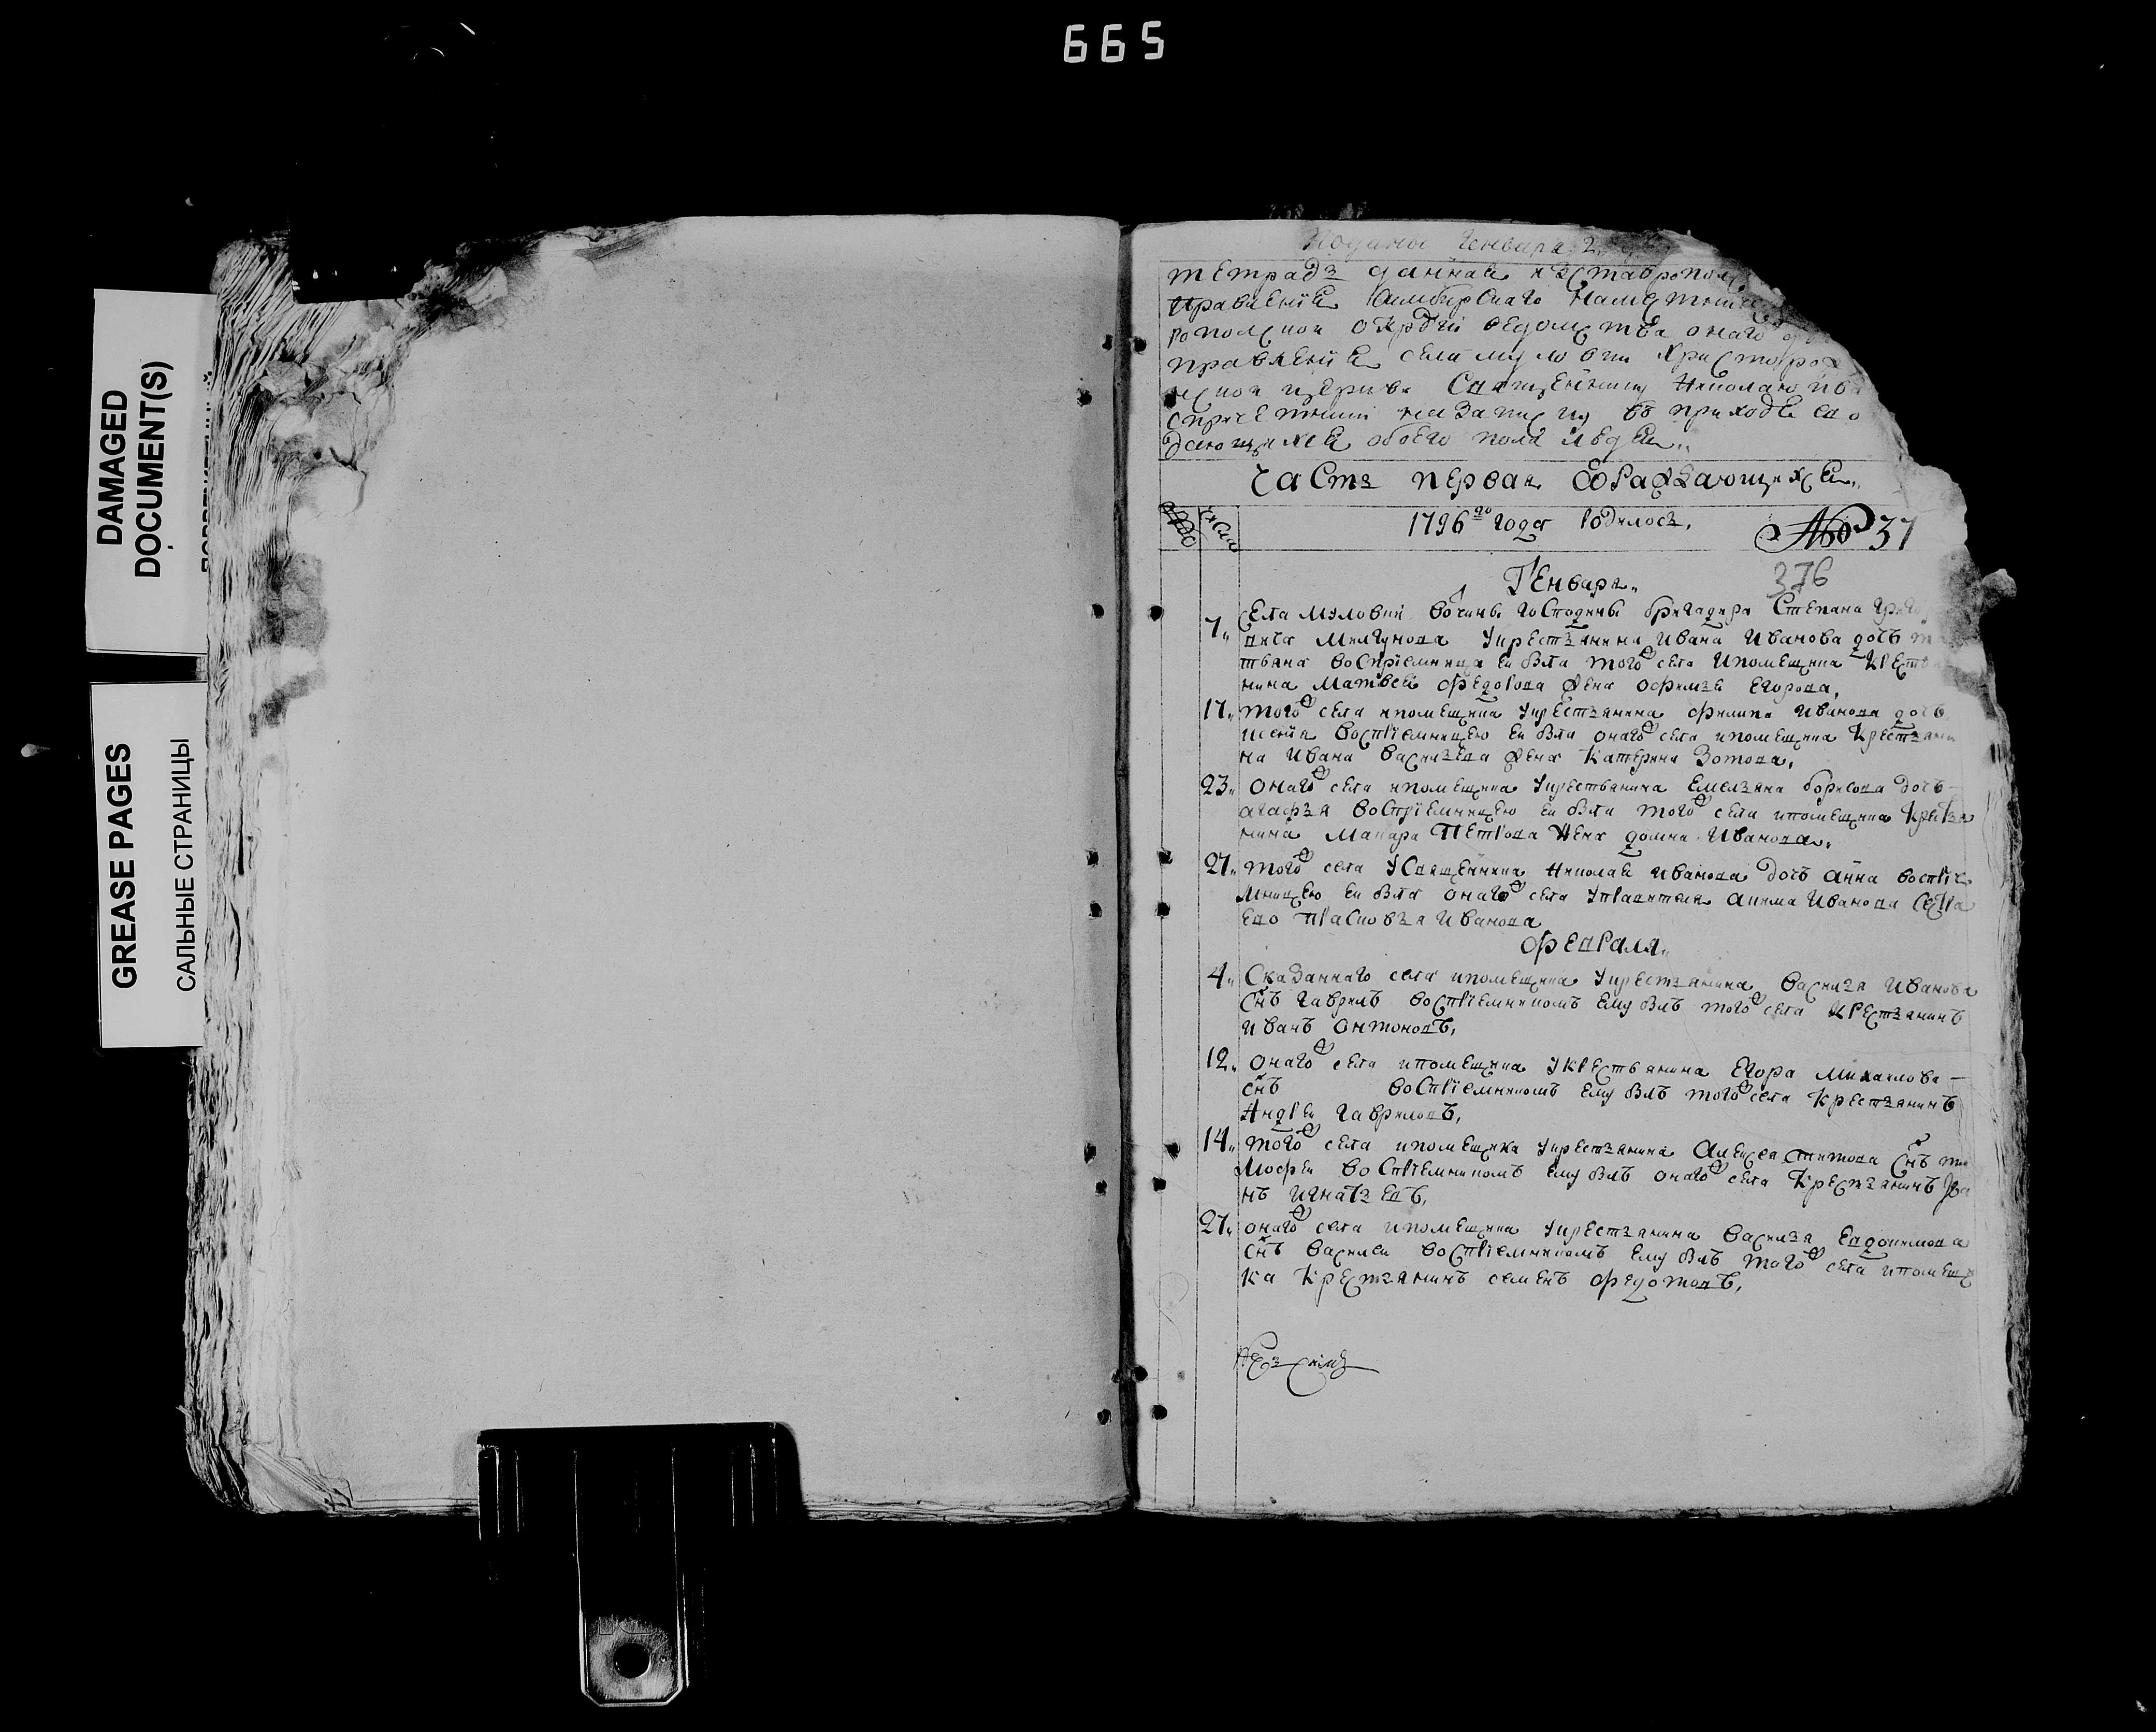 665
DAMAGED
DOCUMENT(S)
GREASE PAGES
САЛЬНЫЕ СТРАНИЦЫ
Поданы Генваря 2
тетрадь данная изставропол
правления Симбирскаго намест
ропольской округи ведомства онаго
правления села муловки христорож
церкви Священнику Николаю Ива
спричетники назаписку въ приходе ево
обоего пола людей
Часть первая Ѡраждающихся
Число
1796го года родилось.
№ 37
376
Генваря
7 Села Муловки вочины Господина бригадира Степана Григо
вича Мелгунова укрестьянина Ивана Иванова дочь та
тьяна восприемница ей была того села ипомещика крестья
нина Матвея Федорова жена Офимья Егорова,
17 того села ипомещика укрестьянина филипа Иванова дочь
восприемницею ей была онаго села ипомещика крестьяни
на Ивана Васильева жена Катерина Зотова,
23 онаго села ипомещика укрестьянина Емельяна борисова дочь
агафья восприемницею ей была того села ипомещика кресья
нина Макара Петрова жена домна Иванова,
27 того села Усвященника Николая Иванова дочь анна воспрiе
мницею ей была онаго села Акима Иванова сестра
ево Прасковья Иванова
февраля
4 Сказаннаго села ипомещика укрестьянина Василья Иванова
снъ гаврилъ восприемникомъ ему былъ того села крестьянинъ
иванъ онтоновъ,
12 онаго села ипомещика укрестьянина Егора Михаилова
снъ восприемникомъ ему былъ того села крестьянинъ
Андрей гавриловъ,
14 того села ипомещика укрестьянина Алексея титова снъ ти
мофей восприемникомъ ему былъ онаго села крестьянинъ
нъ игнатьевъ,
27 онаго села ипомещика укрестьянина Василья Евдокимова
снъ Василей восприемникомъ ему былъ того села ипомещ
ка крестьянинъ семенъ федотовъ,